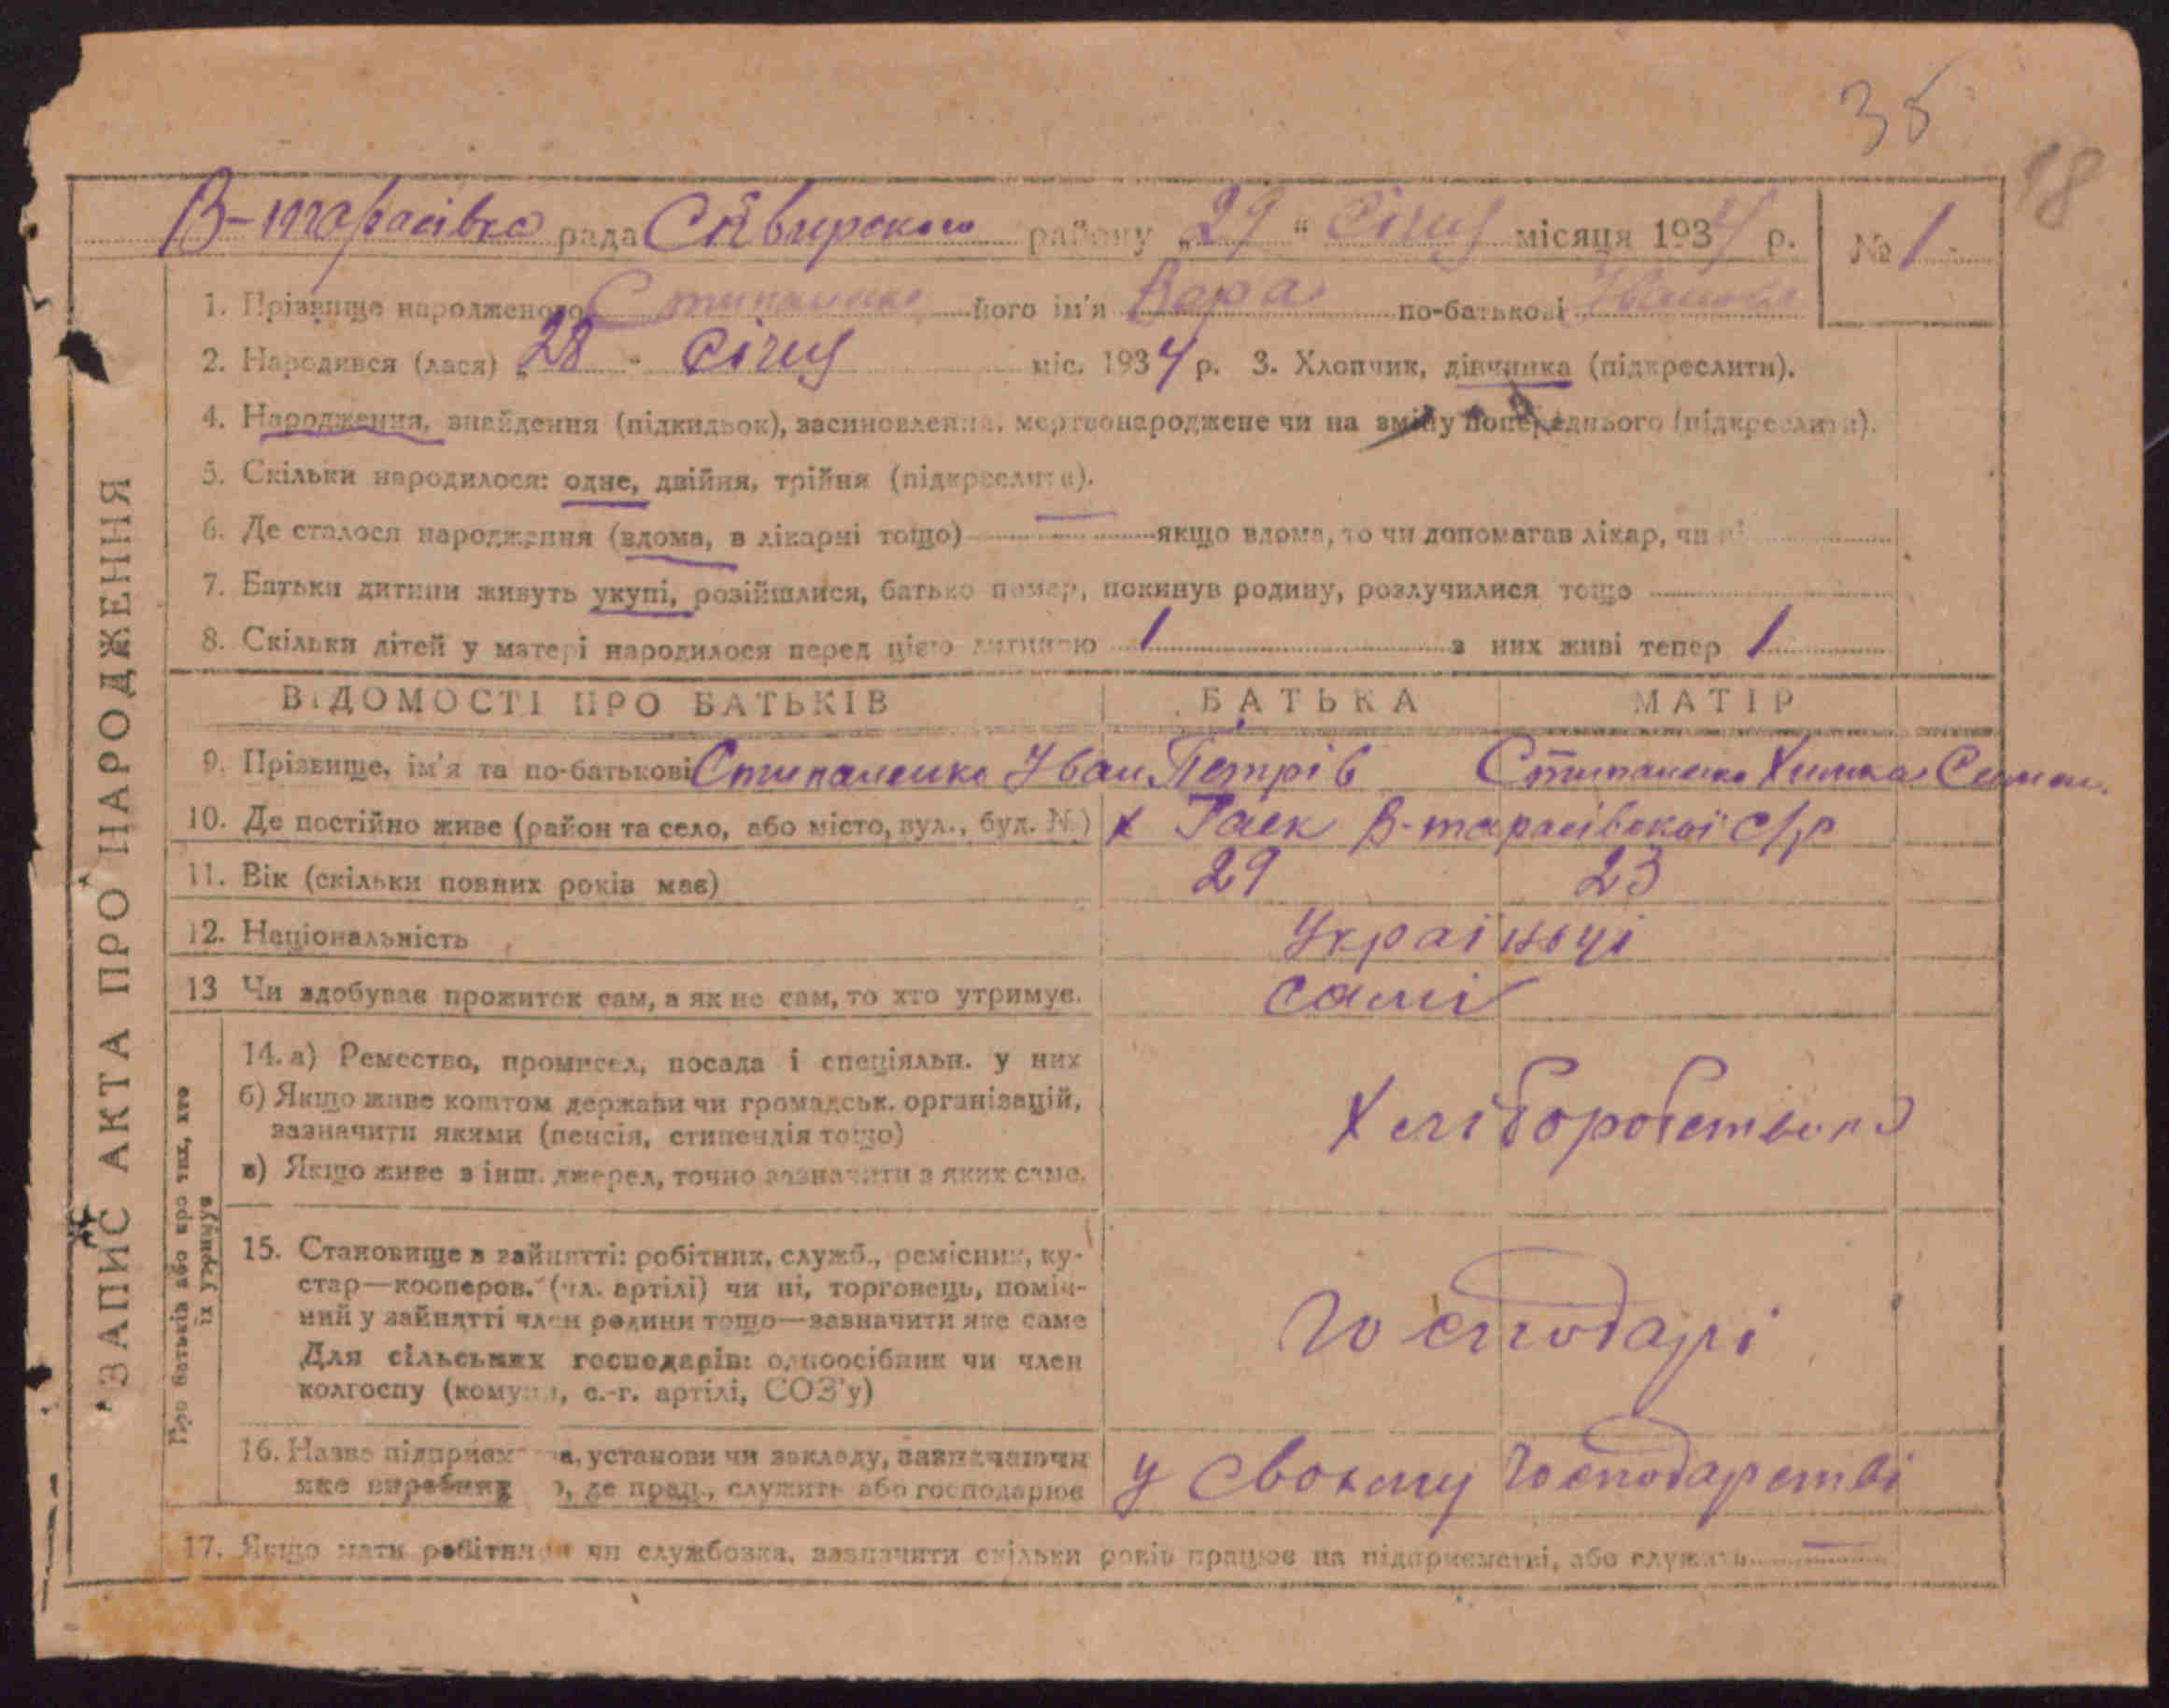 35
18
В-тарасівка рада Сквирского району „29“ Січня місяця 1934 р. № 1
1. Прізвище народженого Степаненко його ім'я Вера по-батькові Іванівна
2. Народився (лася) „28“ Січня міс. 1934 р. 3. Хлопчик, дівчинка (підкреслити).
4. Народження, знайдення (підкидьок), засиновлення, мертвонароджене чи на зміну попереднього (підкреслити).
5. Скільки народилося: одне, двійня, трійня (підкреслити).
6. Де сталося народження (вдома, в лікарні тощо) — якщо вдома, то чи допомагав лікар, чи ні
7. Батьки дитини живуть укупі, розійшлися, батько помер, покинув родину, розлучилися тощо
8. Скільки дітей у матері народилося перед цією дитиною 1 з них живі тепер 1
ВІДОМОСТІ ПРО БАТЬКІВ БАТЬКА МАТІР
9. Прізвище, ім'я та по-батькові Стипаненко Іван Петрів Стипаненко Химка Симон.
10. Де постійно живе (район та село, або місто, вул., буд. №) х Гаєк В-тарасівскої с/р
11. Вік (скільки повних років має) 29 23
12. Національність Українці
13 Чи здобуває прожиток сам, а як не сам, то хто утримує. самі
14. а) Ремество, промисел, посада і спеціяльн. у них
б) Якщо живе коштом держави чи громадськ. організацій,
зазначити якими (пенсія, стипендія тощо)
в) Якщо живе з інш. джерел, точно зазначити з яких саме.
Хліборобство
15. Становище в зайнятті: робітник, служб., ремісник, ку-
стар—кооперов. (чл. артілі) чи ні, торговець, поміч-
ний у зайнятті член родини тощо—зазначити яке саме
Для сільських господарів: одноосібник чи член
колгоспу (комуни, с.-г. артілі, СОЗ'у)
Господарі
16. Назва підприємства, установи чи закладу, зазначаючи
яке виробниц о, де прац., служить або господарює
у своєму господарстві
17. Якщо мати робітниця чи службовка, зазначити скільки років працює на підприємстві, або служить —
ЗАПИС АКТА ПРО НАРОДЖЕННЯ
Про батьків або про тих, хто
їх утримує